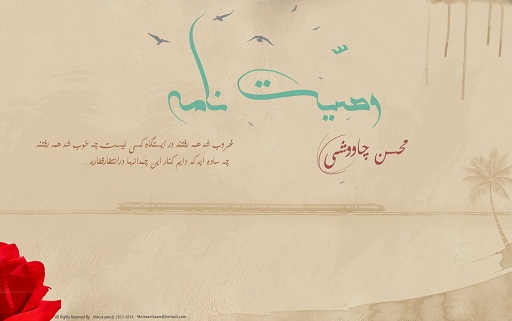 وصیّت نامه
محسن چاووشی
غروب شد همه رفتند در ایستگاه کسی نیست چه خوب شد همه رفتند
چه ساده اید که دایم کنار این چمدانها در انتظار قطارید...
All Rights Reserved By : 2013-2014